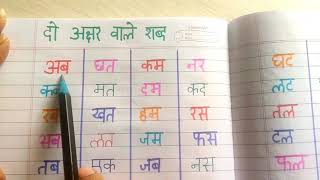 दो अक्षर वाले शब्द
अब छत कम नर घट
मत दम कद लट
खत हम रस तल
लत जम फस टल
तब जब नस फल